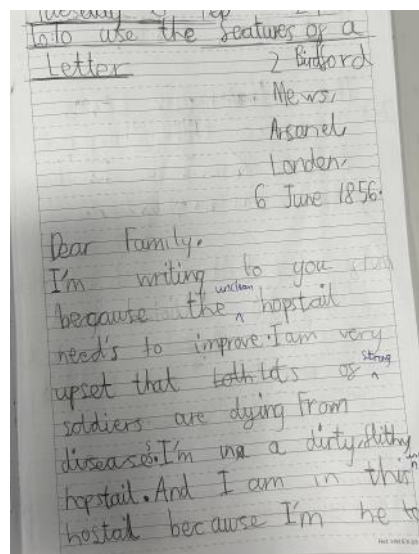 to use the features of a
Letter
2 Birdford
Mews,
Arsanel,
Londen,
6 June 1856.
Dear Family,
I'm writing to you
begause the unclean hopstail
need's to improve. I am very
upset that lots of strong
soldiers are dying from
diseases. I'm in a dirty, filthy
hopstail. And I am in this
hostail because I'm he to